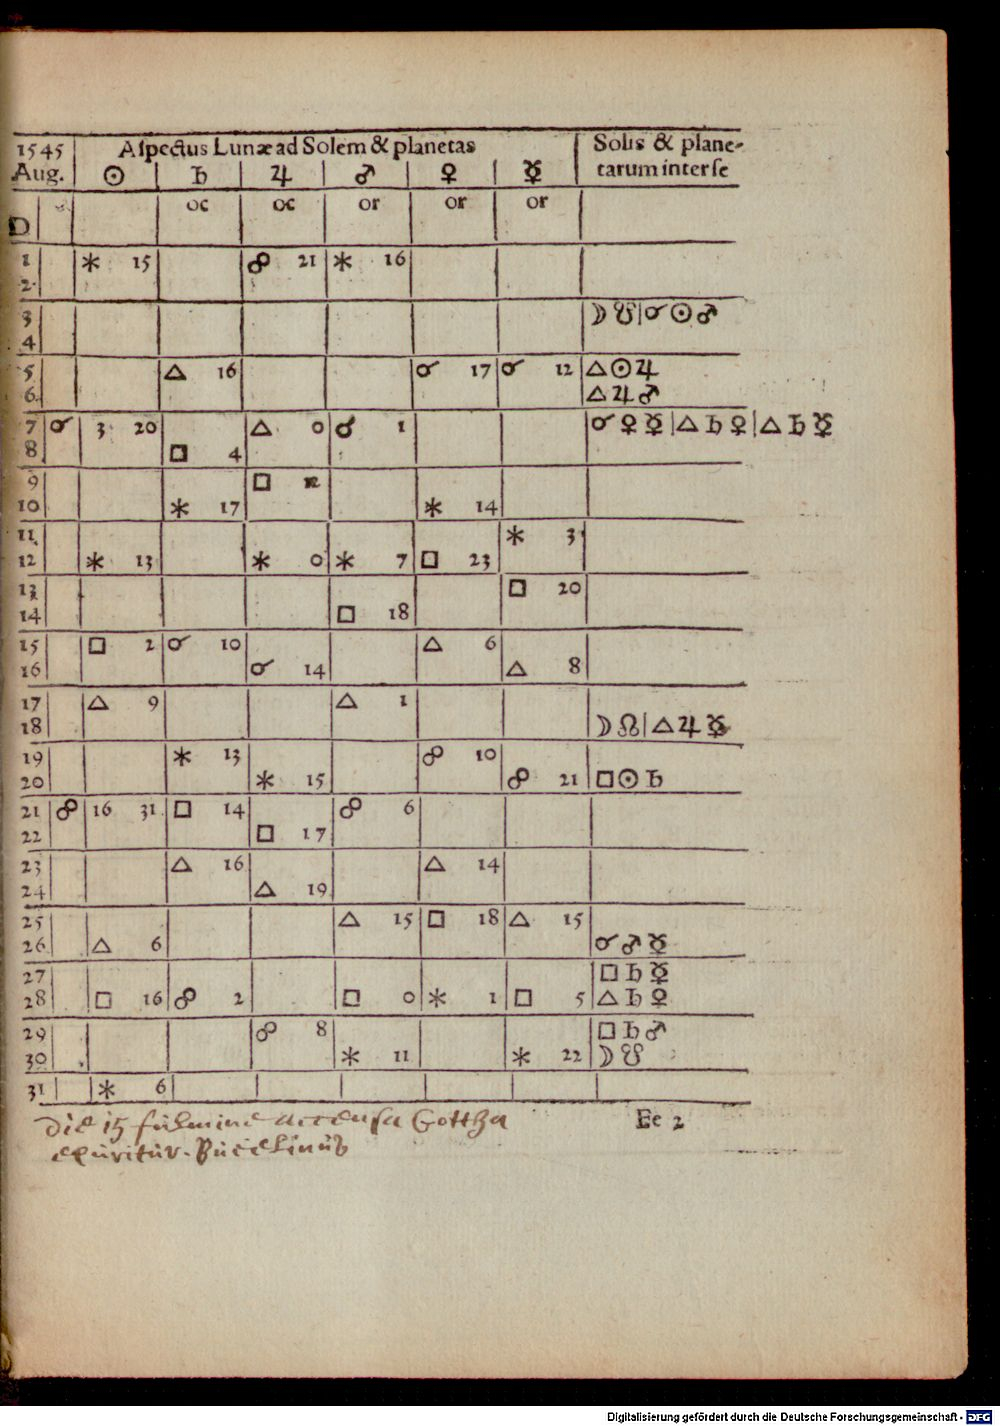 1545 Aspectus Lunæ ad Solem & planetas Solis & plane-
Aug. ☉ ♄ ♃ ♂ ♀ ☿ tarum inter se
D oc oc or or or
1 ⚹ 15 ☍ 21 ⚹ 16
2
3 ☽ ☋ | ☌ ☉ ♂
4
5 △ 16 ☌ 17 ☌ 12 △ ☉ ♃
6 △ ♃ ♂
7 ☌ 3 20 △ 0 ☌ 1 ☌ ♀ ☿ | △ ♄ ♀ | △ ♄ ☿
8 □ 4
9 □ 12
10 ⚹ 17 ⚹ 14
11 ⚹ 3
12 ⚹ 13 ⚹ 0 ⚹ 7 □ 23
13 □ 20
14 □ 18
15 □ 2 ☌ 10 △ 6
16 ☌ 14 △ 8
17 △ 9 △ 1
18 ☽ ☊ | △ ♃ ☿
19 ⚹ 13 ☍ 10
20 ⚹ 15 ☍ 21 □ ☉ ♄
21 ☍ 16 31 □ 14 ☍ 6
22 □ 17
23 △ 16 △ 14
24 △ 19
25 △ 15 □ 18 △ 15
26 △ 6 ☌ ♂ ☿
27 □ ♄ ☿
28 □ 16 ☍ 2 □ 0 ⚹ 1 □ 5 △ ♄ ♀
29 ☍ 8 □ ♄ ♂
30 ⚹ 11 ⚹ 22 ☽ ☋
31 ⚹ 6
Die 15 fulmine accensa Gottha
exuritur. Bucelinus
Ee 2
Digitalisierung gefördert durch die Deutsche Forschungsgemeinschaft - DFG